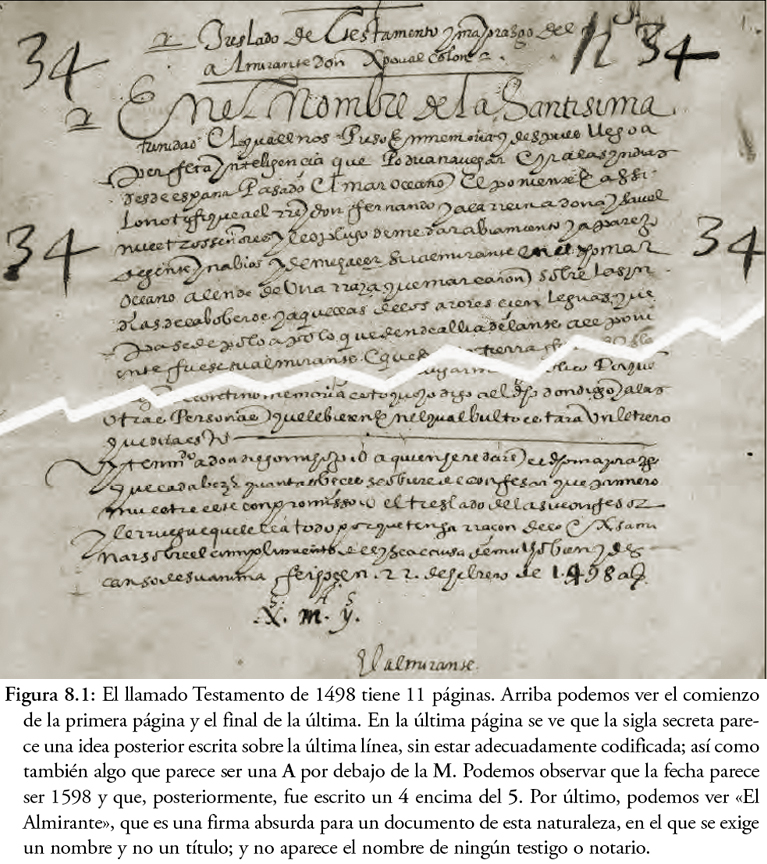 34
Treslado de Testamento y mayorasgo del
Almirante don Xpoual Colon
12
34
En el Nombre de la Santisima
trinidad El qual me Puso En memoria y despues llego a
perfeta ynteligencia que Podria nauegar E yr a las yndias
desde españa Pasado El mar oceano El poniente
Lo notifique al rrey don fernando y a la rreina doña ysauel
nuestros señores
34
34
gente y nabios y de me hacer su almirante en el mar
oceano allende de Una rraya que marcaron sobre las
yslas de cabo berde y aquellas de los azores cien leguas que
pasa de polo a polo que dende alli adelante al poni
ente fuese su almirante
tierra
Porque
contino memoria esto que yo digo al dho don diego a las
otras Personas que lebieren nel qual bulto estara Un letrero
que diga esto
Yten mdo a don diego mi hijo o a quien eredare el dho mayorazgo
que cada bez y quantas beces se obiere de confesar que primero
muestre este compromisso o el treslado del a su confesor
y le rruegue que le lea todo porque tenga rracon de lo Exsami
nar sobre el cumplimiento del y sea causa de mucho bien y des
canso de su anima
en 22 de febrero de 1498
S. A. S.
X. m. y.
El almirante.
Figura 8.1: El llamado Testamento de 1498 tiene 11 páginas. Arriba podemos ver el comienzo
de la primera página y el final de la última. En la última página se ve que la sigla secreta pare-
ce una idea posterior escrita sobre la última línea, sin estar adecuadamente codificada; así como
también algo que parece ser una A por debajo de la M. Podemos observar que la fecha parece
ser 1598 y que, posteriormente, fue escrito un 4 encima del 5. Por último, podemos ver «El
Almirante», que es una firma absurda para un documento de esta naturaleza, en el que se exige
un nombre y no un título; y no aparece el nombre de ningún testigo o notario.